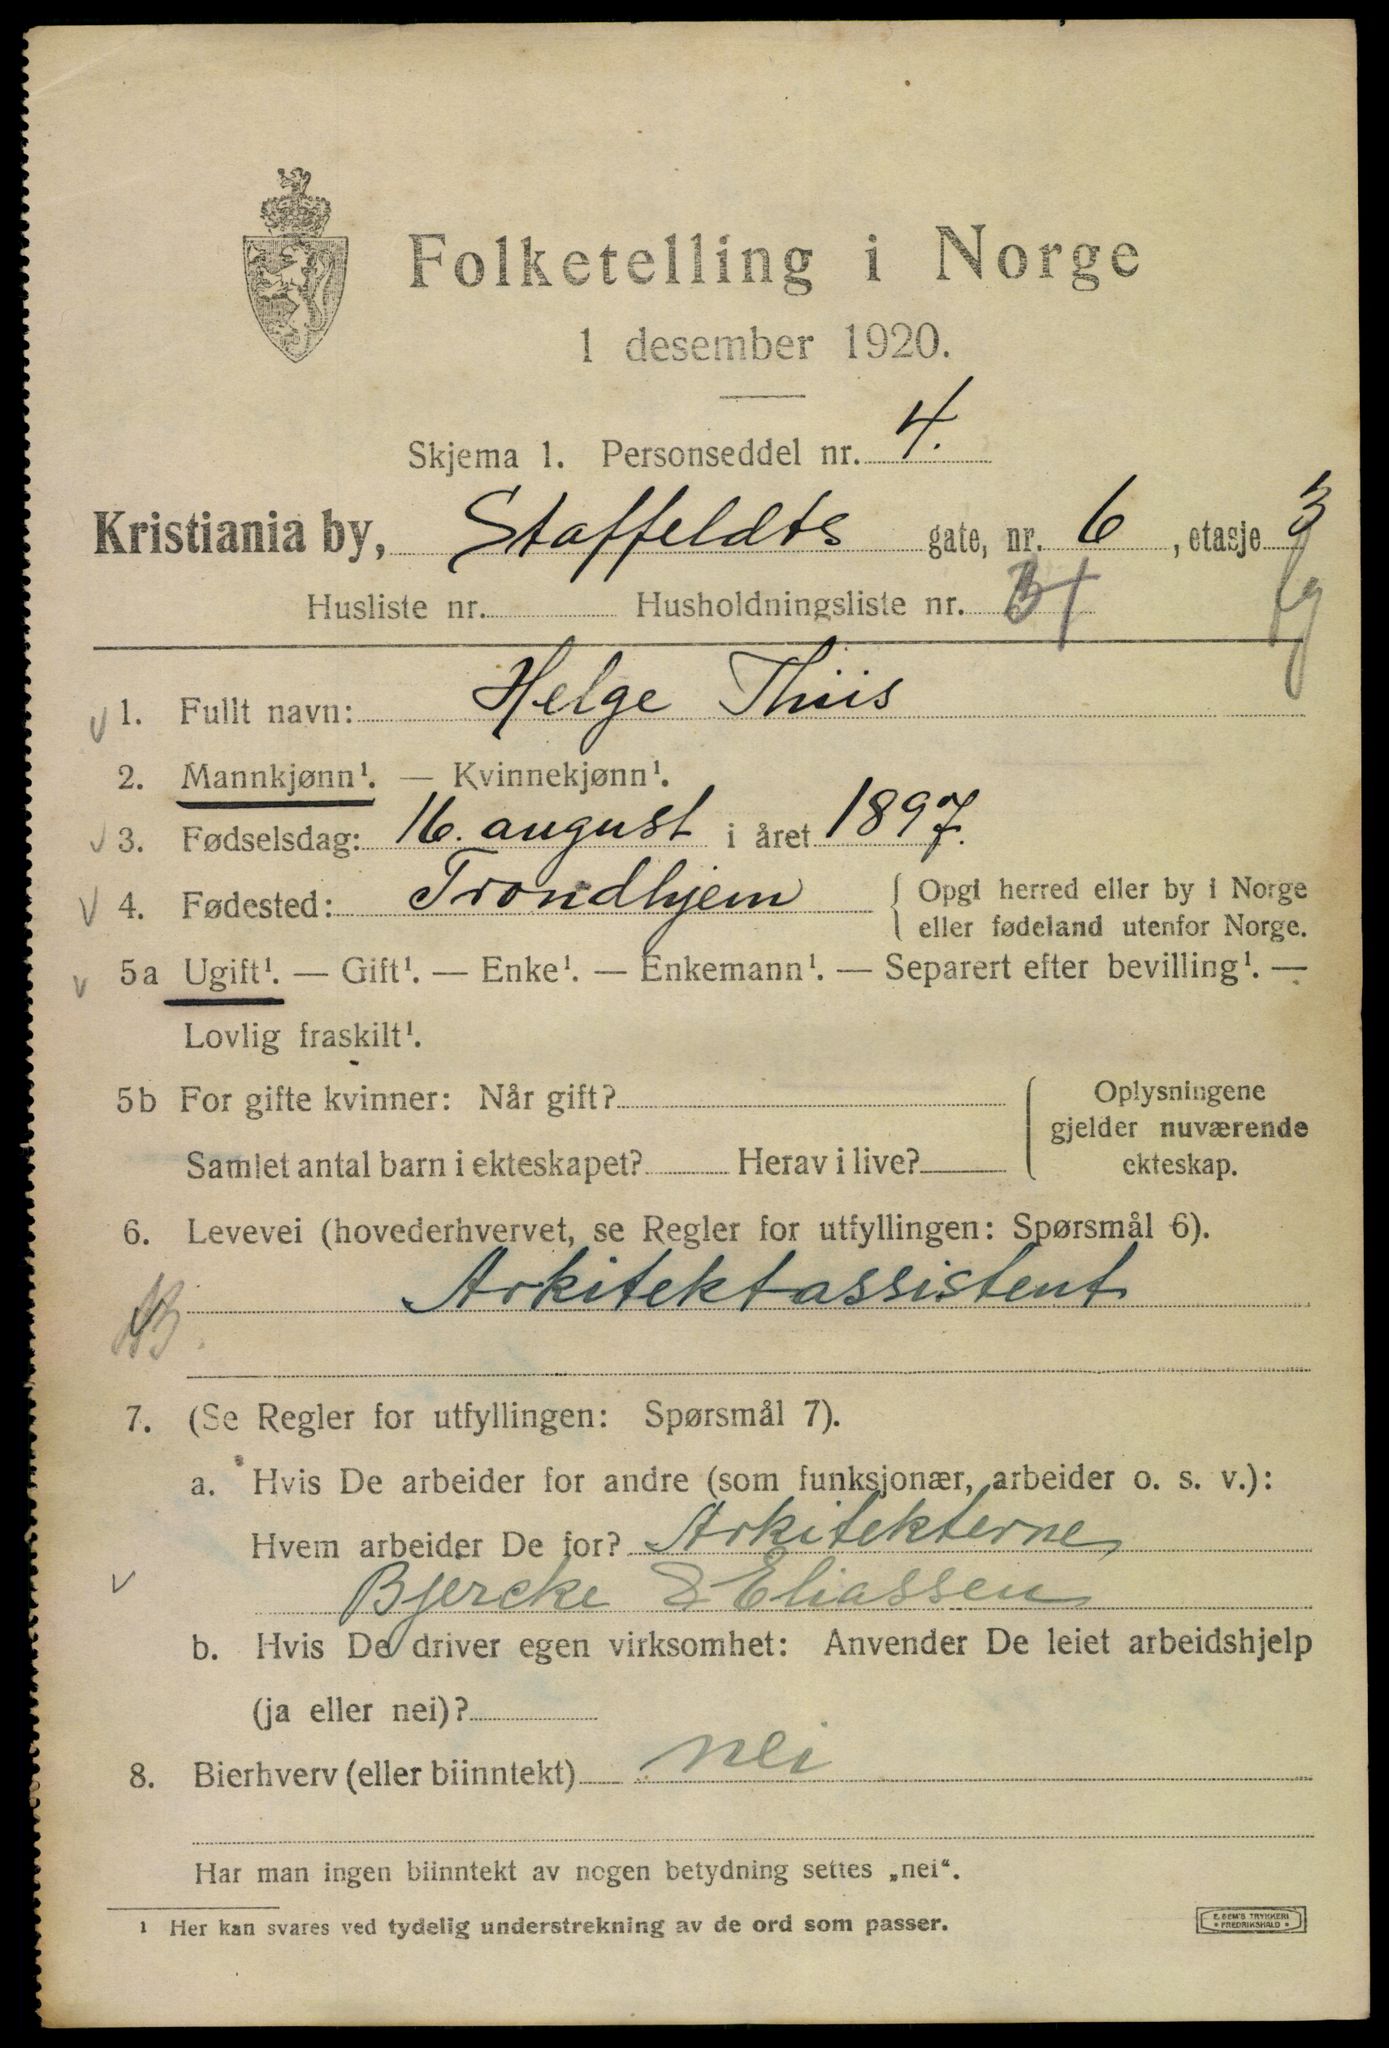 Folketelling i Norge
1 desember 1920.
Skjema 1. Personseddel nr. 4.
Kristiania by, Staffeldts gate, nr. 6, etasje 3
Husliste nr. Husholdningsliste nr.
1. Fullt navn: Helge Thiis
2. Mannkjønn¹. — Kvinnekjønn¹.
3. Fødselsdag: 16. august i året 1897.
4. Fødested: Trondhjem { Opgi herred eller by i Norge
eller fødeland utenfor Norge.
5a Ugift¹. — Gift¹. — Enke¹. — Enkemann¹. — Separert efter bevilling¹. —
Lovlig fraskilt¹.
5b For gifte kvinner: Når gift? { Oplysningene
gjelder nuværende
Samlet antal barn i ekteskapet? Herav i live? ekteskap.
6. Levevei (hovederhvervet, se Regler for utfyllingen: Spørsmål 6).
Arkitektassistent
7. (Se Regler for utfyllingen: Spørsmål 7).
a. Hvis De arbeider for andre (som funksjonær, arbeider o. s. v.):
Hvem arbeider De for? Arkitekterne
Bjercke & Eliassen
b. Hvis De driver egen virksomhet: Anvender De leiet arbeidshjelp
(ja eller nei)?
8. Bierhverv (eller biinntekt) nei
Har man ingen biinntekt av nogen betydning settes „nei“.
¹ Her kan svares ved tydelig understrekning av de ord som passer.
E. SEM'S TRYKKERI
* FREDRIKSHALD *